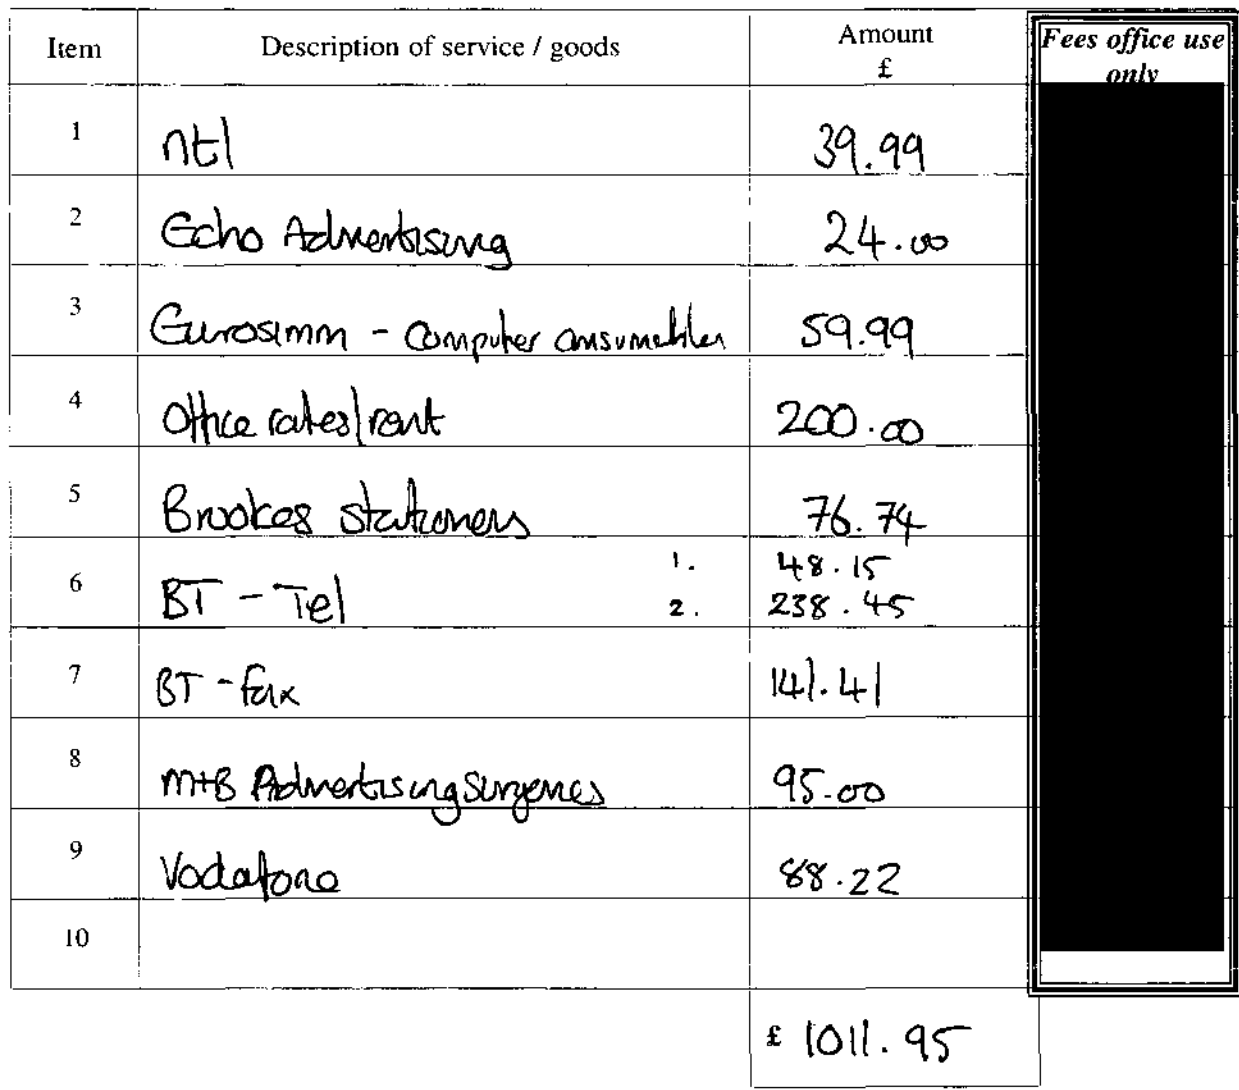 Item Description of service / goods Amount £ Fees office use only
1 ntl 39.99
2 Echo Advertising 24.00
3 Eurosimm - computer consumables 59.99
4 Office rates/rent 200.00
5 Brookes stationers 76.74
6 BT - Tel 1. 48.15
2. 238.45
7 BT - fax 141.41
8 M+B Advertising Surgeries 95.00
9 Vodafone 88.22
10
£ 1011.95